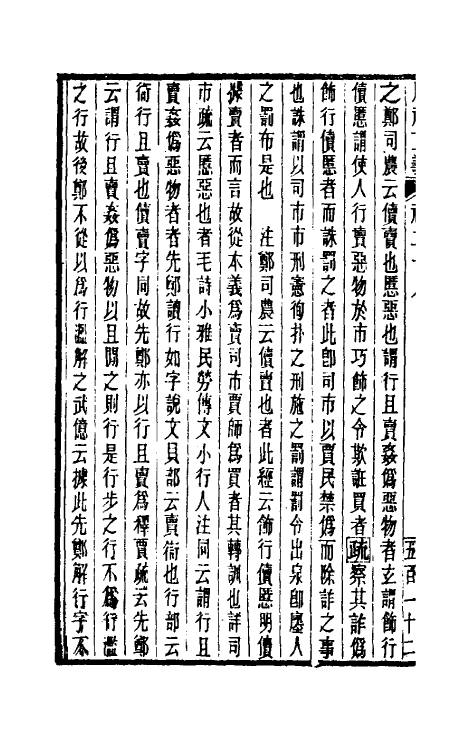 之鄭司農云儥賣也慝惡也謂行且賣姦僞惡物者玄謂飾行
儥慝謂使人行賣惡物於市巧飾之令欺誑買者疏察其詐僞
飾行儥慝者而誅罰之者此卽司市以賈民禁僞而除詐之事
也誅謂以司市市刑憲徇扑之刑施之罰謂罰令出泉卽廛人
之罰布是也　注鄭司農云儥賣也者此經云飾行儥慝明儥
據賣者而言故從本義爲賣司市賈師爲買者其轉訓也詳司
市疏云慝惡也者毛詩小雅民勞傳文小行人注同云謂行且
賣姦僞惡物者者先鄭讀行如字說文貝部云賣衒也行部云
衒行且賣也儥賣字同故先鄭亦以行且賣爲釋賈疏云先鄭
云謂行且賣姦僞惡物以且閒之則行是行步之行不爲行濫
之行故後鄭不從以爲行濫解之武億云據此先鄭解行字不
五百一十二